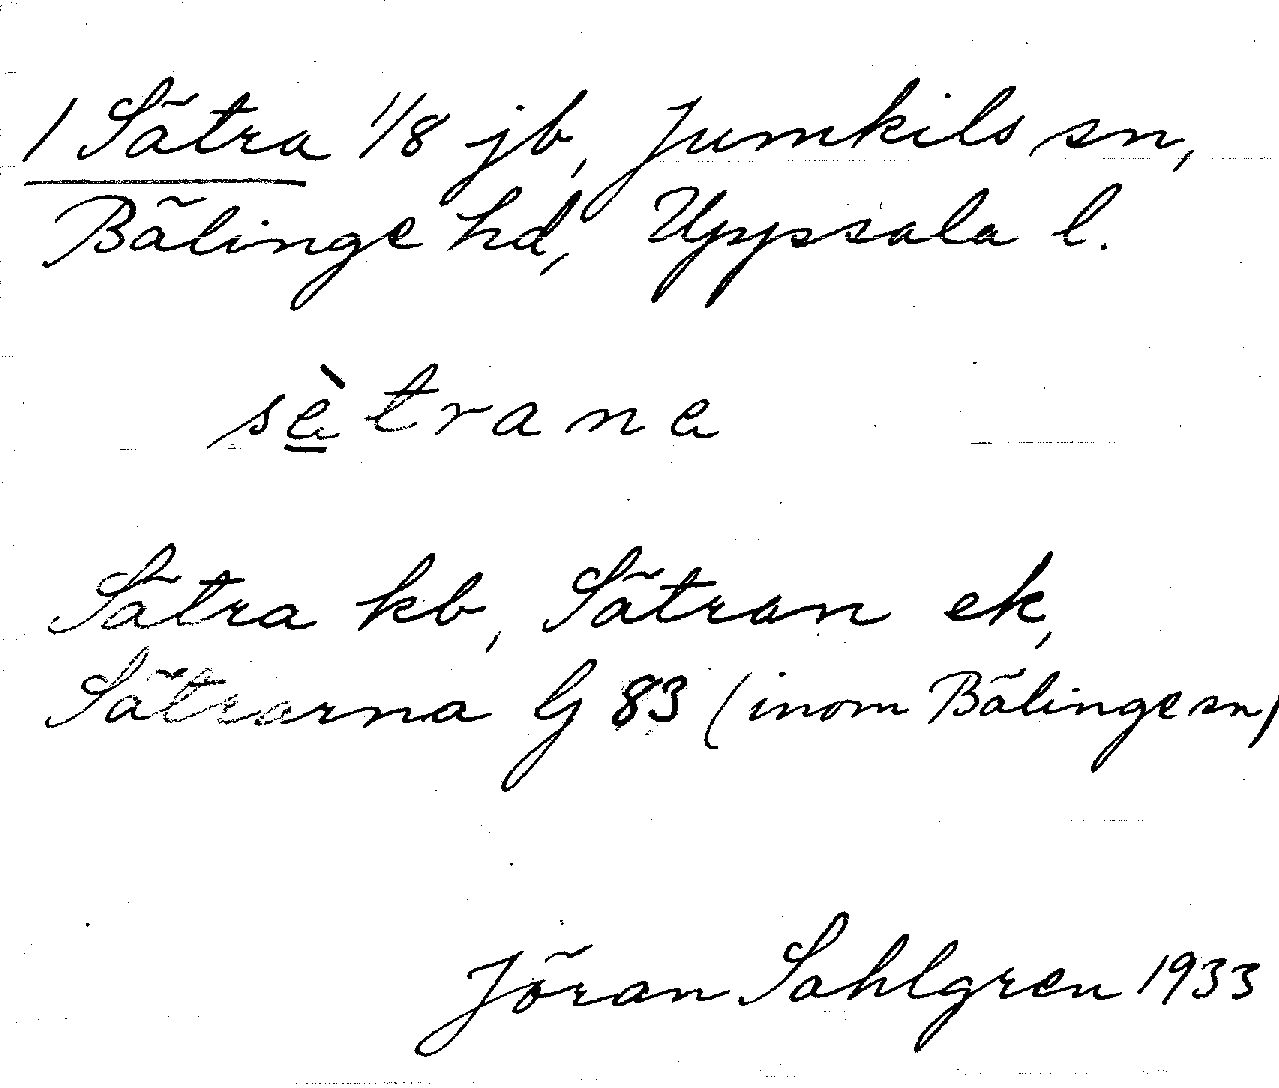 1 Sätra 1/8 jb, Jumkils sn,
Bälinge hd, Uppsala l.
sè̲trana
Sätra kb, Sätran ek,
Sätrarna G 83 (inom Bälinge sn)
Jöran Sahlgren 1933